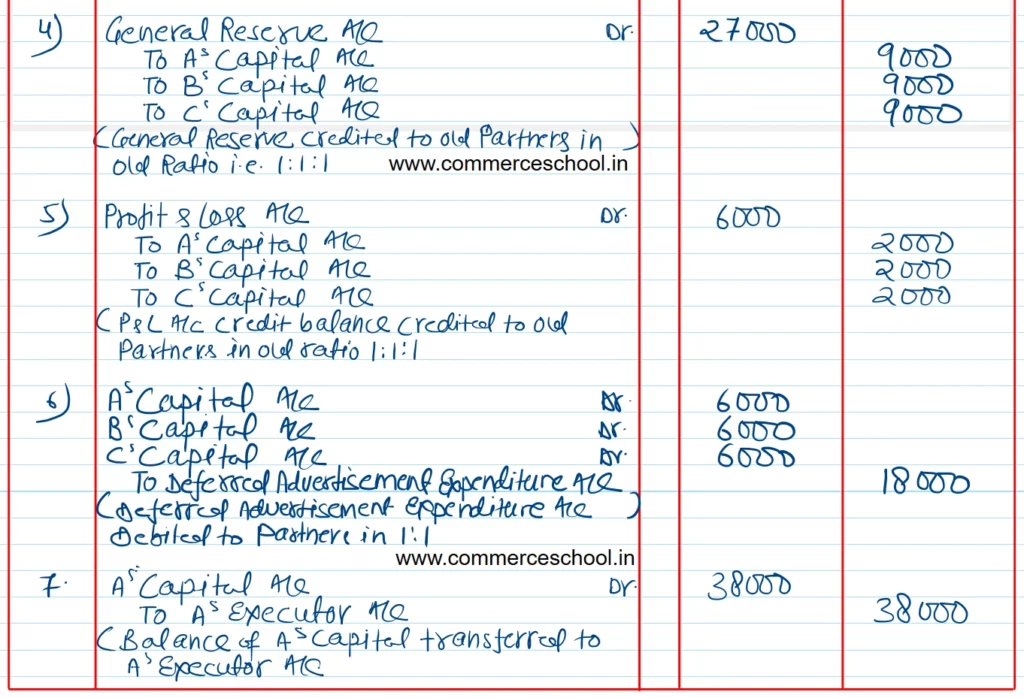 4) General Reserve A/c Dr. 27000
To A's Capital A/c 9000
To B's Capital A/c 9000
To C's Capital A/c 9000
(General Reserve credited to old Partners in )
old Ratio i.e. 1:1:1 www.commerceschool.in
5) Profit & Loss A/c Dr. 6000
To A's Capital A/c 2000
To B's Capital A/c 2000
To C's Capital A/c 2000
(P&L A/c credit balance credited to old
Partners in old ratio 1:1:1
6) A's Capital A/c Dr. 6000
B's Capital A/c Dr. 6000
C's Capital A/c Dr. 6000
To Deferred Advertisement Expenditure A/c 18000
(Deferred Advertisement Expenditure A/c )
Debited to Partners in 1:1
www.commerceschool.in
7. A's Capital A/c Dr. 38000
To A's Executor A/c 38000
(Balance of A's Capital transferred to
A's Executor A/c